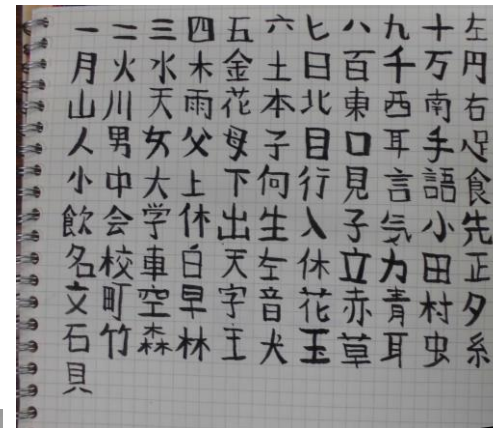 一二三四五六七八九十左
月火水木金土日百千万円
山川天雨花本北東西南右
人男女父母子目口耳手足
小中大上下何行見言語食
飲会学休出生入子気小先
名校車白天左休立力田正
文町空早字音花赤青村夕
石竹森林王犬玉草耳虫糸
貝